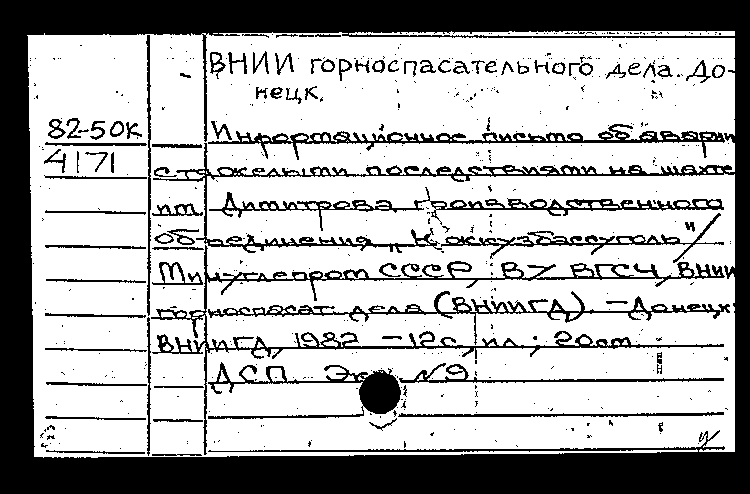 ВНИИ горноспасательного дела. До-
нецк.
82-50К Информационное письмо об аварии
4171 с тяжелыми последствиями на шахте
им. Димитрова производственного
объединения „
Минуглепром СССР, ВУ ВГСЧ, ВНИИ
горноспасат. дела (ВНИИГД). – Донецк:
ВНИИГД, 1982 – 12с., ил.; 20см.
ДСП. Экз. N9